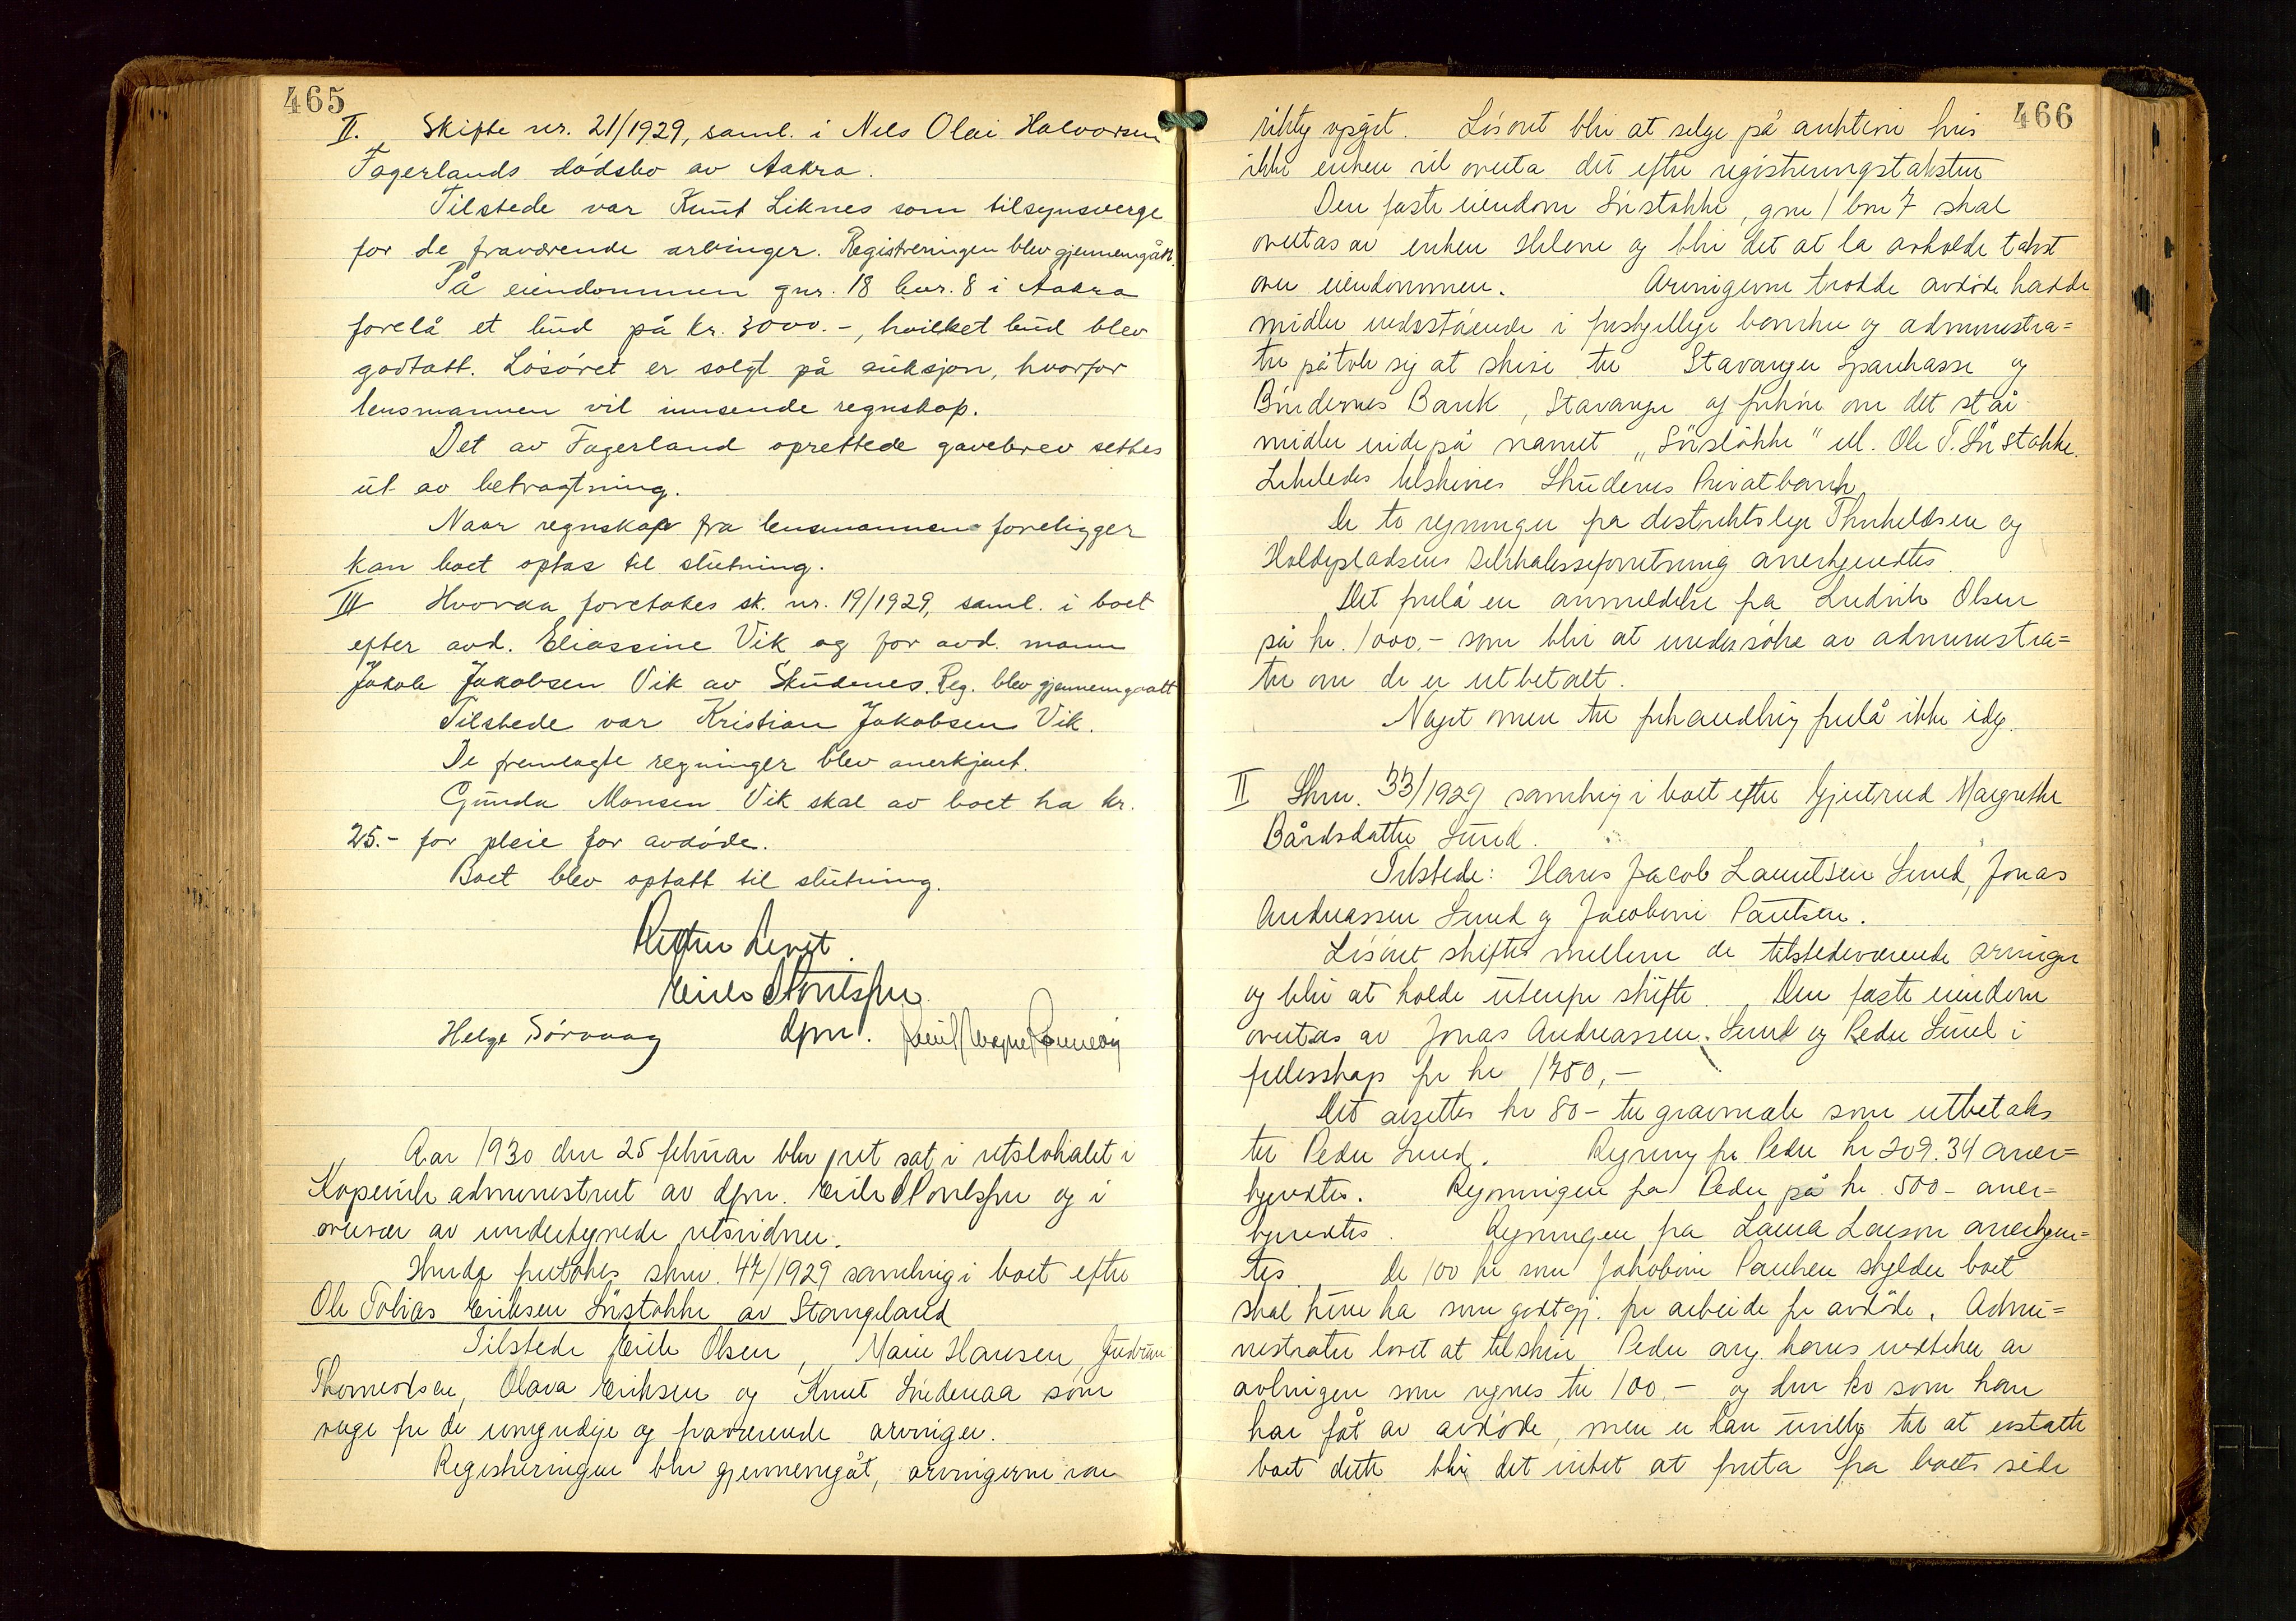 465
II. Skifte nr. 21/1929, saml. i Nils Olai Halvorsen
Fagerlands dødsbo av Aakra.
Tilstede var Knut Liknes som tilsynsverge
for de fraværende arvinger. Registreringen blev gjennemgått.
På eiendommen gnr. 18 bnr. 8 i Aakra
forelå et bud på kr. 3000.-, hvilket bud blev
godtatt. Løsøret er solgt på auksjon, hvorfor
lensmannen vil innsende regnskap.
Det av Fagerland oprettede gavebrev settes
ut av betragtning.
Naar regnskap fra lensmannen foreligger
kan boet optas til slutning.
III Hvorda foretokes sk. nr. 19/1929, saml. i boet
efter avd. Eliassine Vik og for avd. mann
Jakob Jakobsen Vik av Skudenes. Reg. blev gjennemgaatt
Tilstede var Kristian Jakobsen Vik.
De fremlagte regninger blev anerkjent.
Gunda Monsen Vik skal av boet ha kr.
25.- for pleie for avdøde.
Boet blev optatt til slutning.
Retten hevet.
Helge Sørvaag dfm.
Aar 1930 den 25 februar blev ret sat i retslokalet i
Kopervik administrert av dfm. Eirik og i
overvær av undertegnede retsvidner.
Hvorda foretokes sknr. 47/1929 samling i boet efter
Ole Tobias Eriksen Sørstokke av Stangeland
Tilstede Erik Olsen, Marie Hansen, Gudrun
Thomedsen, Olava Eriksen og Knut Sørdenaa som
verge for de umyndige og fraværende arvinger.
Registreringen blev gjennemgåt, arvingerne var
466
riktig opgit. Løsøret blir at selge på auktion hvis
ikke enken vil overta det efter registreringstaksten
Den faste eiendom Sørstokke, gnr 1 bnr 7 skal
overtas av enken Helene og blir det at la avholde takst
over eiendommen. Arvingerne trodde avdøde hadde
midler indestående i forskjellige banker og administra=
tor påtok sig at skrive til Stavanger Sparekasse og
Bøndernes Bank, Stavanger og forhøre om det står
midler inde på navnet "Sørstokke" el. Ole T. Sørstokke.
Likeledes tilskrives Skudenes Privatbank
De to regninger fra distriktslege Thorkeldsen og
Holdepladsens Delikatesseforretning anerkjendtes.
Det forelå en anmeldelse fra Ludvik Olsen
på kr. 1000.- som blir at undersøke av administra=
tor om de er utbetalt.
Noget mere til forhandling forelå ikke idag.
II Sknr. 33/1929 samling i boet efter Gjertrud Margrethe
Bårdsdatter Lund.
Tilstede: Hans Jacob Lauritsen Lund, Jonas
Andreassen Lund og Jacobine Paulsen.
Løsøret skiftes mellem de tilstedeværende arvinger
og blir at holde utenfor skifte. Den faste eiendom
overtas av Jonas Andreassen Lund og Peder Lund i
fellesskap for kr 1750,-
Det avsettes kr 80- til gravmæle som utbetales
til Peder Lund. Regning fra Peder kr 209.34 aner=
kjendtes. Regningen fra Peder på kr. 500- aner=
kjendtes. Regningen fra Laura Larson anerkjen=
tes. De 100 kr som Jakobine Paulsen skylder boet
skal hun ha som godtgj. for arbeide for avdøde. Admi=
nistrator lovet at tilskrive Peder ang. hans av
avlingen som regnes til 100.- og den ko som han
har fåt av avdøde, men er han uvillig til at erstatte
boet dette blir det intet at foreta fra boets side